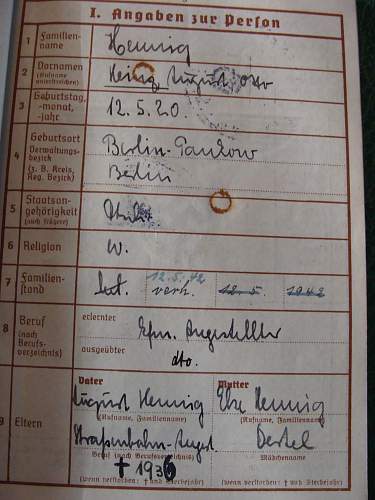 I. Angaben zur Person
1 Familien-
name Hennig
2 Vornamen
(Rufname
unterstreichen) Heinz August Otto
3 Geburtstag,
-monat,
-jahr 12. 5. 20.
4 Geburtsort Berlin-Pankow
Verwaltungs-
bezirk
(z. B. Kreis,
Reg. Bezirk) Berlin
5 Staatsan-
gehörigkeit
(auch frühere)
6 Religion
7 Familien-
stand led. 12.5.42
verh. 12.5. 1942
8 Beruf
(nach
Berufs-
verzeichnis) erlernter Kfm. Angestellter
ausgeübter dto.
9 Eltern
Vater Mutter
August Hennig Hennig
(Rufname, Familienname) (Rufname, Familienname)
Straßenbahn-Angest. Oertel
Beruf (nach Berufsverzeichnis) Mädchenname
† 1936
(wenn verstorben: † und Sterbejahr) (wenn verstorben: † und Sterbejahr)